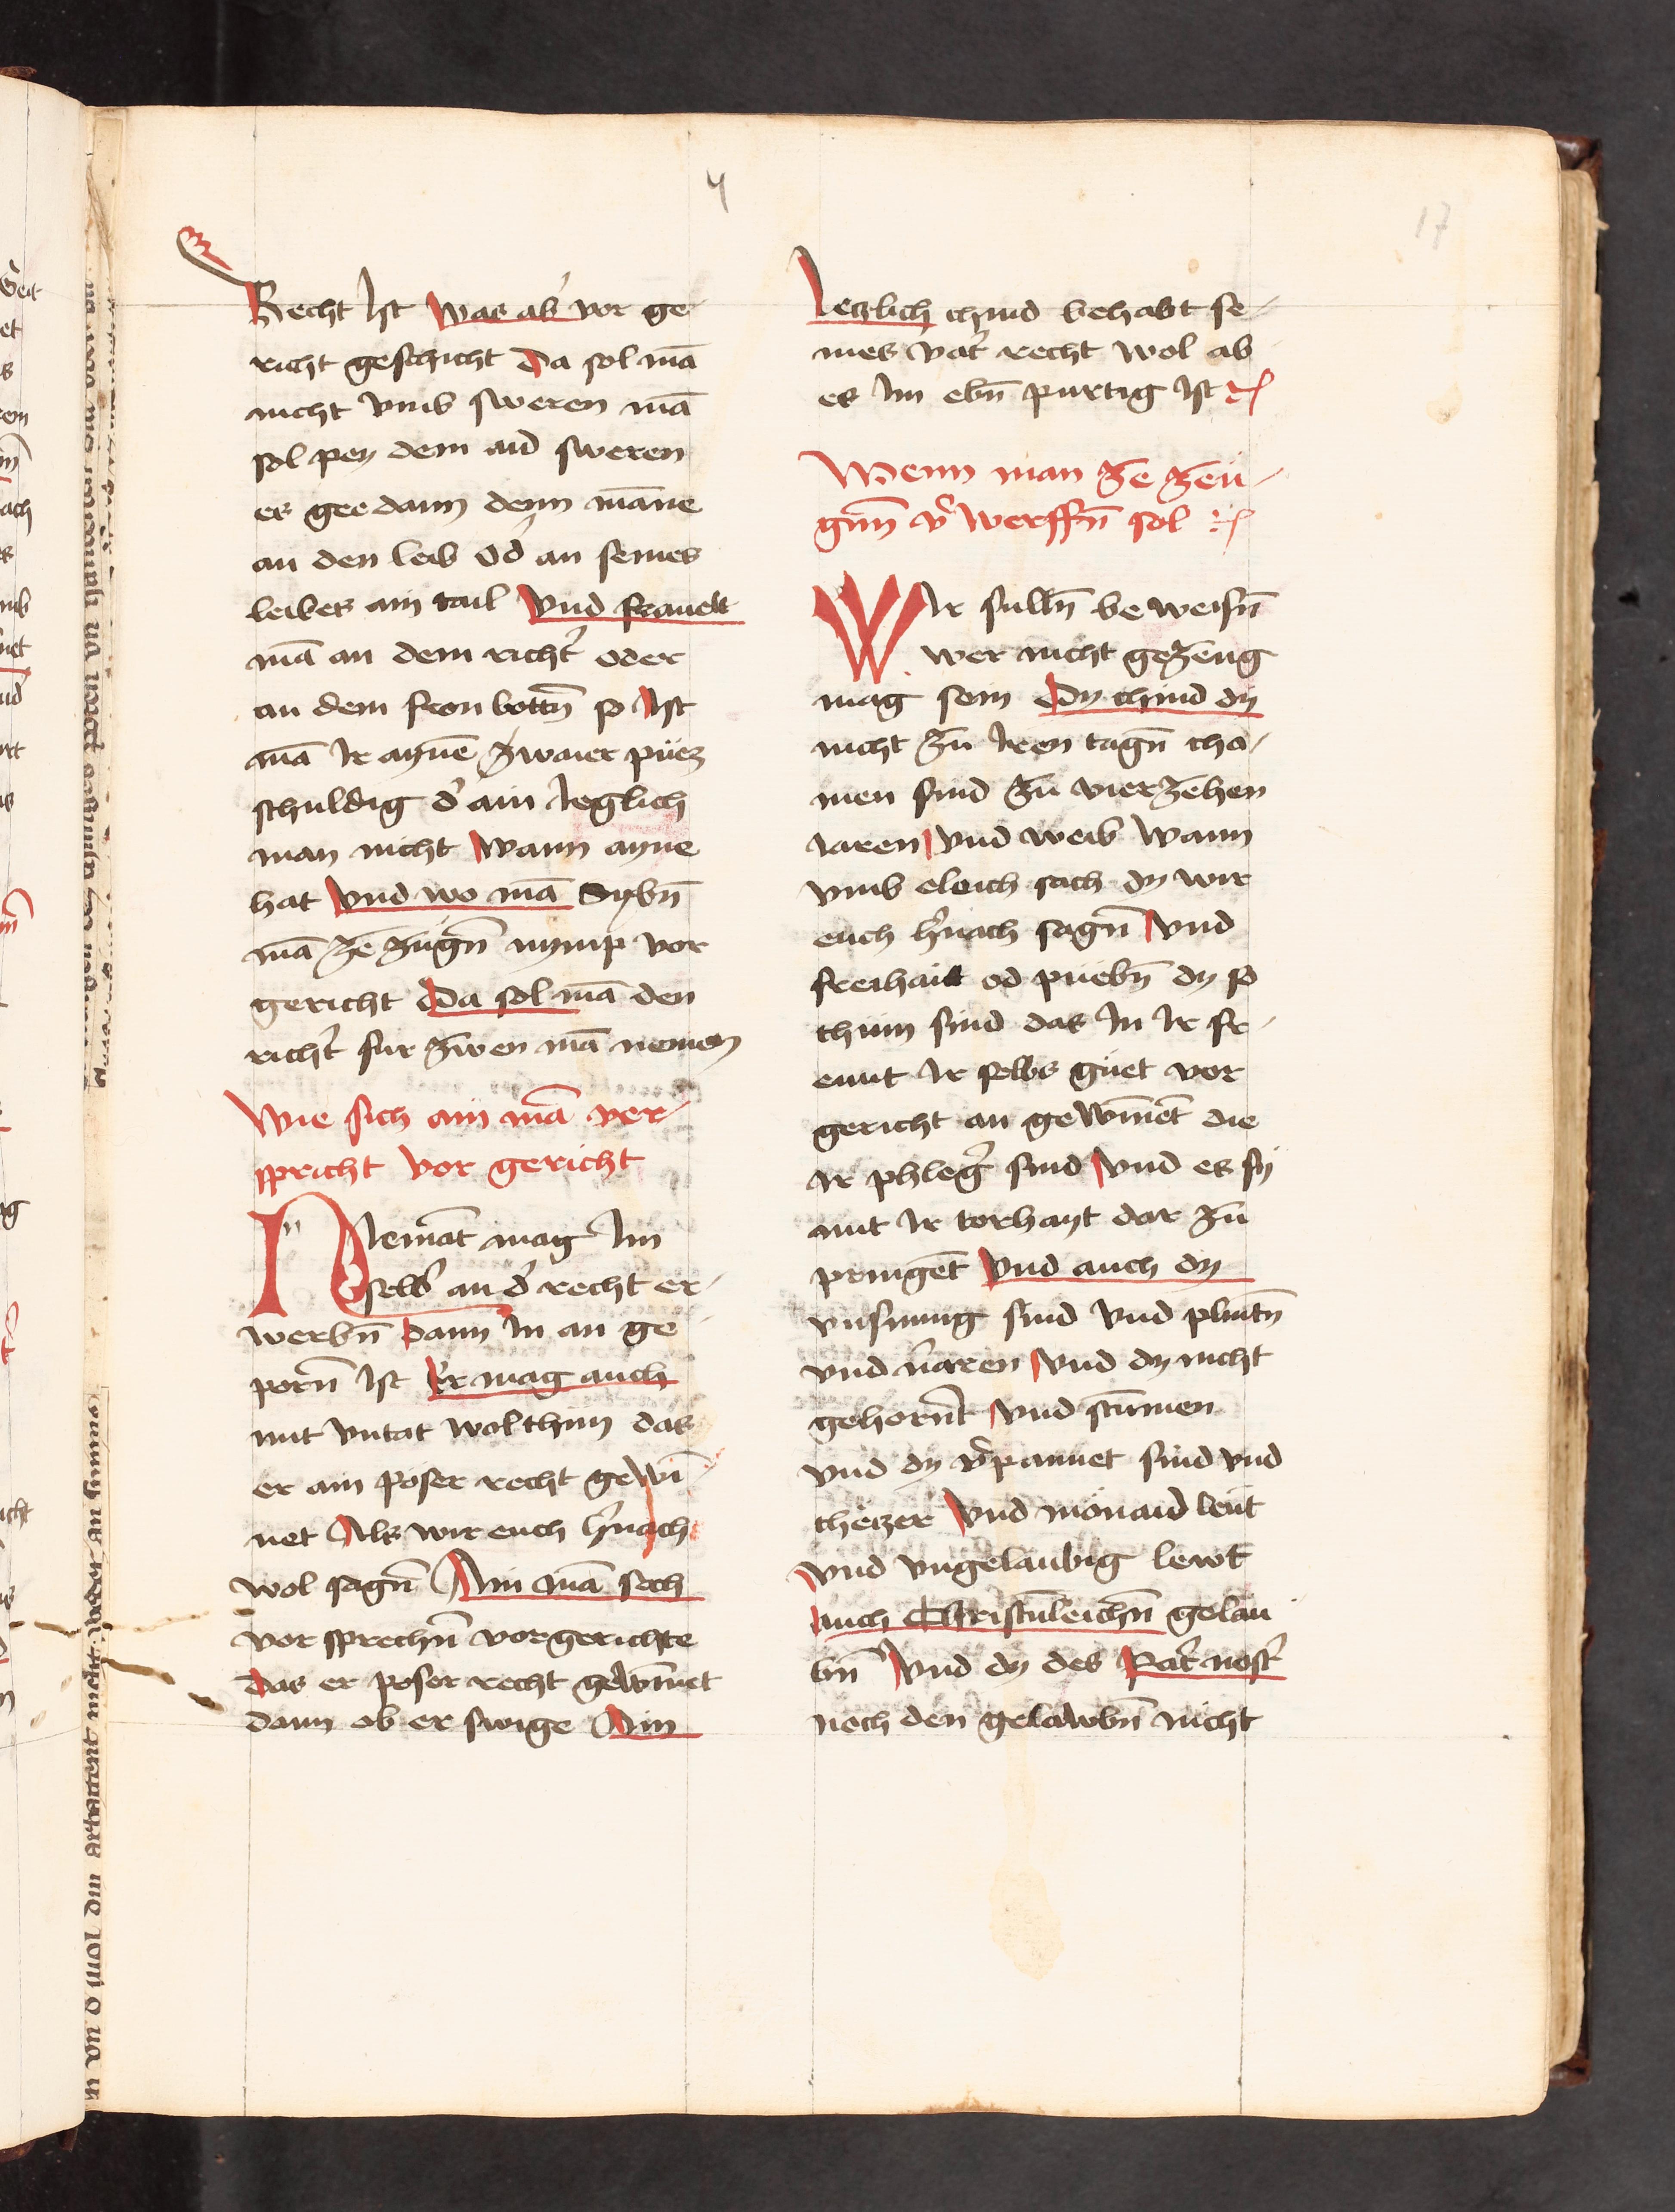 4
17
Recht Ist Was ab' vor ge-
richt geschicht Da sol mā
nicht vmb sweren mā
sol pey dem aid sweren
er gee dann denn māne
an den leib Od' an seines
leibes ain tail Vnd frauelt
mā an dem richt' oder
an dem fron bottn̄ so Ist
mā Ir aynē zwaier puez
schuldig d' ain Ieglich
man nicht Wann ayne
hat Vnd wo mā Sybn̄
mā ze zugn̄ nymp vor
gericht Da sol mā den
richt' fur zwen mā nemen
Wie sich ain mā ver-
spricht vor gericht
NIemāt mag Im
selb' an d' recht er-
werbn̄ Dann In an ge
porn̄ Ist Er mag auch
mit vntat wol thun das
er ain poser recht gewī-
net Als wir euch h'nach
wol sagn̄ Ain mā sech
vor sprechn̄ vor gerichte
Das er poser recht gewīnet
dann ob er swige Ain
Ieczlich chind behabt se-
ines vat' recht wol ab
es Im ebn̄ purtig Ist
Wenn man ze zeu-
gnn̄ v' werffn̄ sol
WIr sulln̄ be weisn̄
wer nicht gezeug
mag sein Dy chind dy
nicht zu Iren tagn̄ cho-
men sind zu vierzehen
Iaren Vnd weib Wann
vmb eleich sach dy wir
euch h'nach sagn̄ Vnd
freihait od puebn̄ dy so
thum sind das In Ir fr-
eunt Ir selbs guet vor
gericht an gewīnēt die
Ir phleg' sind Vnd es sy
mit Ir torhayt dar zu
pringēt Vnd auch dy
vnsinnig sind Vnd plintn̄
vnd narren Vnd dy nicht
gehornt Vnd stummen
vnd dy v'pannet sind vnd
checzer Vnd monaid leut
Vnd vngelaubig lewt
Auch Christnleichn̄ gelau
bn̄ Vnd dy des Pat' nost'
noch den gelawbn̄ nicht